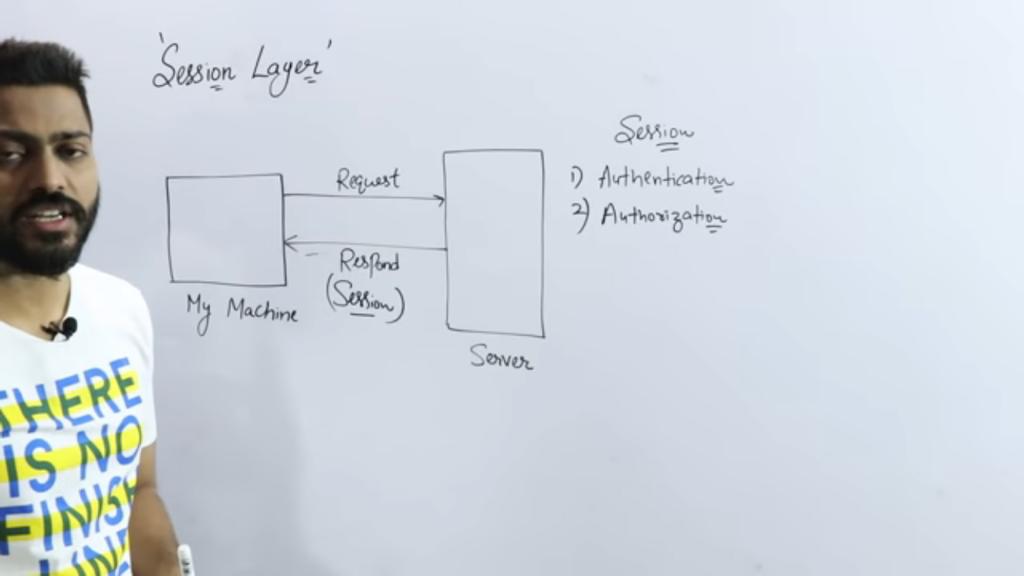 'Session Layer'
Request
Respond
(Session)
My Machine
Server
Session
1) Authentication
2) Authorization
THERE
IS NO
FINISH
LINE